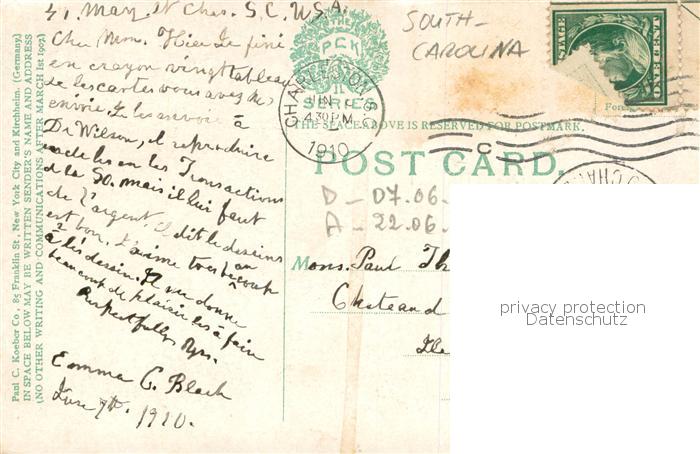 41, Mary St Chas. S.C. U.S.A.
Cher Mon. Hier Je finé
en crayon vingt tableau
de les cartes vous avez
envoié. Je les envoie à
Dr Wilson, il reproduire
en les Transactions
de la So. mais il lui faut
de l'argent. Il dit le dessins
est bon. J'aime tres beaucoup
à les dessin. Il me donne
beaucoup de plaisir les à fair
Respectfully Yrs.
Emma C. Black
June 7th. 1910.
Paul C. Koeber Co., 85 Franklin St., New York City and Kirchheim, (Germany.)
IN SPACE BELOW MAY BE WRITTEN SENDER'S NAME AND ADDRESS
(NO OTHER WRITING AND COMMUNICATIONS AFTER MARCH 1st 1907)
THE
PCK
SERIES
CHARLESTON, S.C.
JUN
4 30 PM
1910
SOUTH-
CAROLINA
THE SPACE ABOVE IS RESERVED FOR POSTMARK.
Foreign
POSTAGE
1 CENT 1
C
POST CARD.
D - 07.06.
A - 22.06.
Mons. Paul Th
Chateaud
Ile
privacy protection
Datenschutz